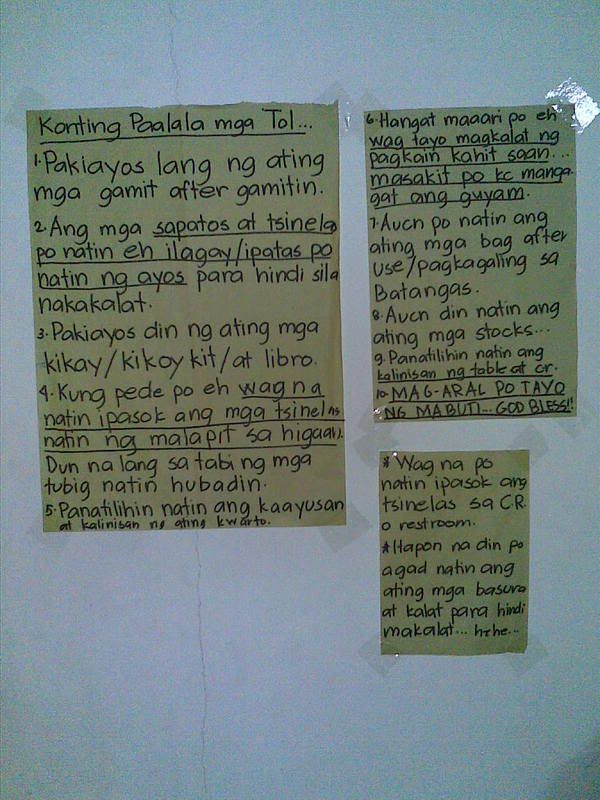 Konting Paalala mga Tol...
1. Pakiayos lang ng ating
mga gamit after gamitin.
2. Ang mga sapatos at tsinelas
po natin eh ilagay/ipatas po
natin ng ayos para hindi sila
nakakalat.
3. Pakiayos din ng ating mga
kikay/kikoy kit/at libro.
4. Kung pede po eh wag na
natin ipasok ang mga tsinelas
natin ng malapit sa higaan.
Dun na lang sa tabi ng mga
tubig natin hubadin.
5. Panatilihin natin ang kaayusan
at kalinisan ng ating kwarto.
6. Hangat maaari po eh
wag tayo magkalat ng
pagkain kahit saan...
masakit po kc manga-
gat ang guyam.
7. Aucn po natin ang
ating mga bag after
use/pagkagaling sa
Batangas.
8. Aucn din natin ang
ating mga stocks...
9. Panatilihin natin ang
kalinisan ng table at cr.
10. MAG-ARAL PO TAYO
NG MABUTI... GOD BLESS!!
* Wag na po
natin ipasok ang
tsinelas sa CR
o restroom.
* Itapon na din po
agad natin ang
ating mga basura
at kalat para hindi
makalat... hehe...